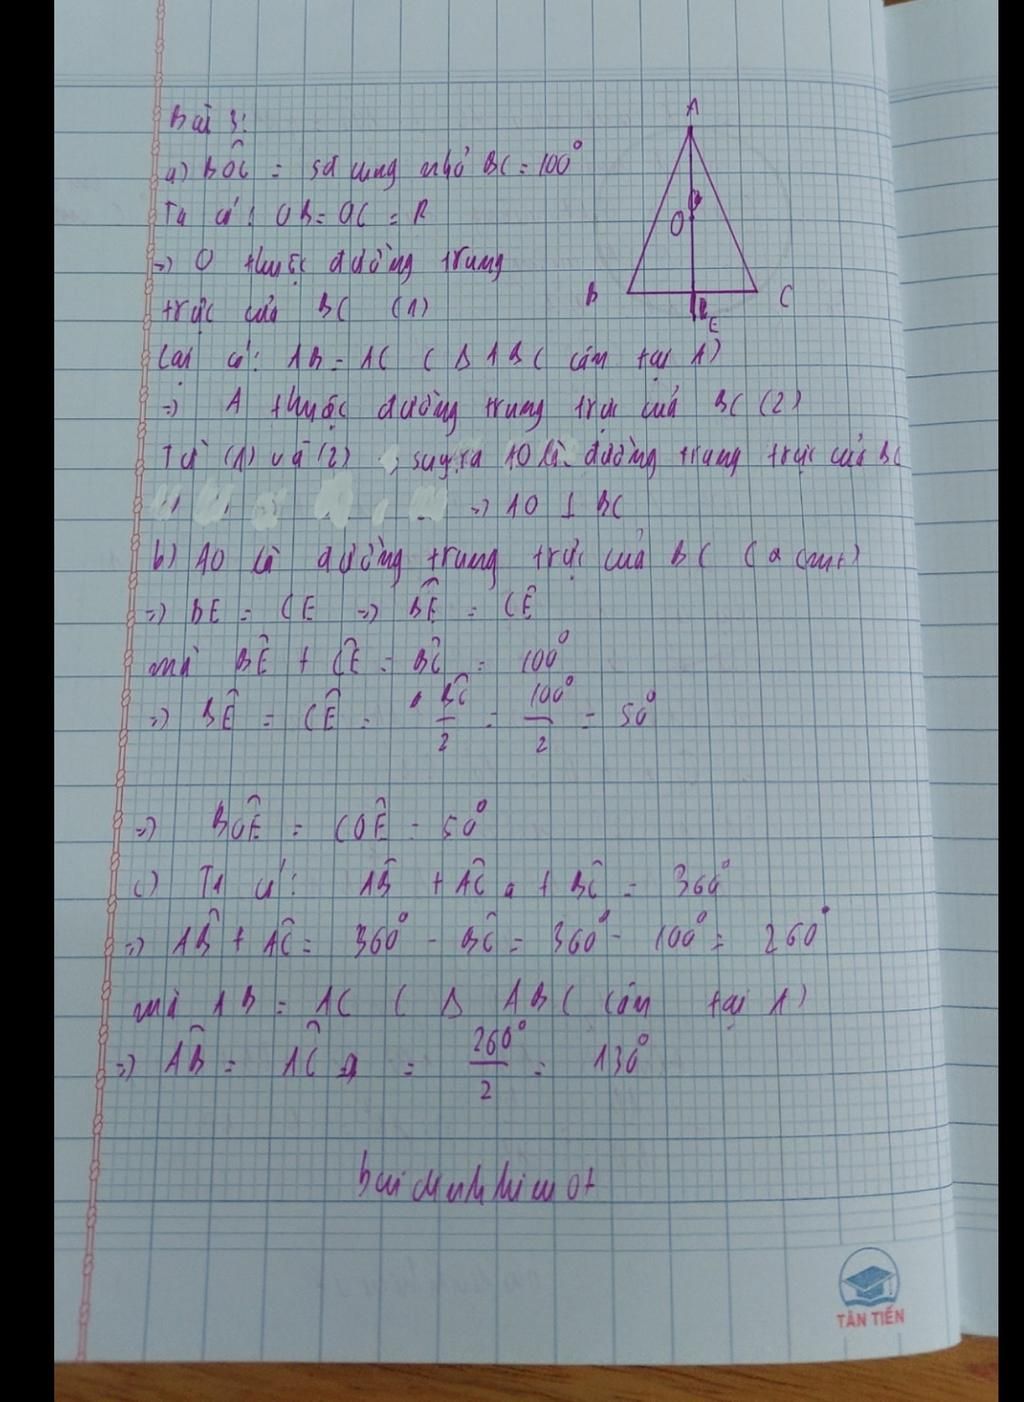 Bài 3:
a) BÔC = sđ cung nhỏ BC = 100°
Ta có: OB = OC = R
=> O thuộc đường trung
trực của BC (1)
Lại có: AB = AC (Δ ABC cân tại A)
=> A thuộc đường trung trực của BC (2)
Từ (1) và (2) suy ra AO là đường trung trực của BC
=> AO ⊥ BC
b) AO là đường trung trực của BC (a cmt)
=> BE = CE => BE͡ = CE͡
mà BE͡ + CE͡ = BC͡ = 100°
=> BE͡ = CE͡ = BC͡/2 = 100°/2 = 50°
=> BOÊ = COÊ = 50°
c) Ta có: AB͡ + AC͡ + BC͡ = 360°
=> AB͡ + AC͡ = 360° - BC͡ = 360° - 100° = 260°
mà AB = AC (Δ ABC cân tại A)
=> AB͡ = AC͡ = 260°/2 = 130°
A
O
B
C
E
TÂN TIẾN